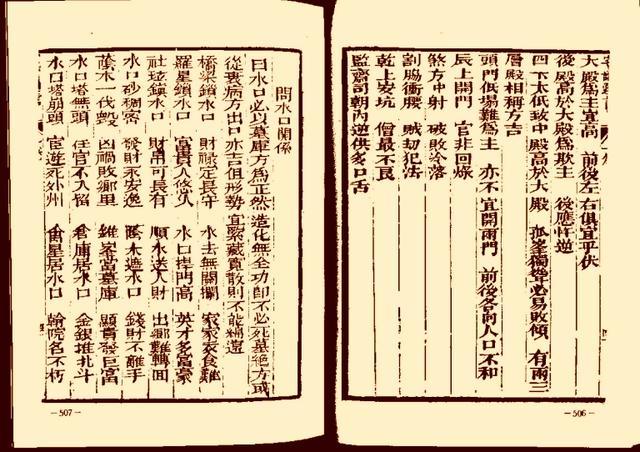 大殿爲主宜高　前後左右俱宜平伏
後殿高於大殿爲欺主　後應忤逆
四下太低致中殿高於大殿　孤峯獨聳必易敗傾　有兩三
層殿相稱方吉
頭門低塲難爲主　亦不宜開兩門　前後各向人口不和
辰上開門　官非回祿
煞方中射　破敗冷落
割腸衝腰　賊劫犯法
乾上安坑　僧最不良
監齋司朝內逆供多口舌
—506—
問水口關係
曰水口必以墓庫方爲正然造化無全功卽不必死墓絕方或
從衰病方出口亦吉但形勢宜緊藏寬散則不能精選
橋梁鎖水口　財祿定長守　水去無關攔　家家衣食難
羅星鎖水口　富貴人悠久　水口捍門高　英才多富豪
社坛鎮水口　財帛可長有　順水送人財　出鄉難轉回
水口砂稠密　發財永安逸　蔭木遮水口　錢財不離手
蔭木一伐毀　凶禍敗鄉里　維峯當墓庫　顯貴發巨富
水口塔無頭　任官不久留　倉庫居水口　金銀堆北斗
水口塔崩頭　宦遊死外州　禽星居水口　翰院名不朽
—507—